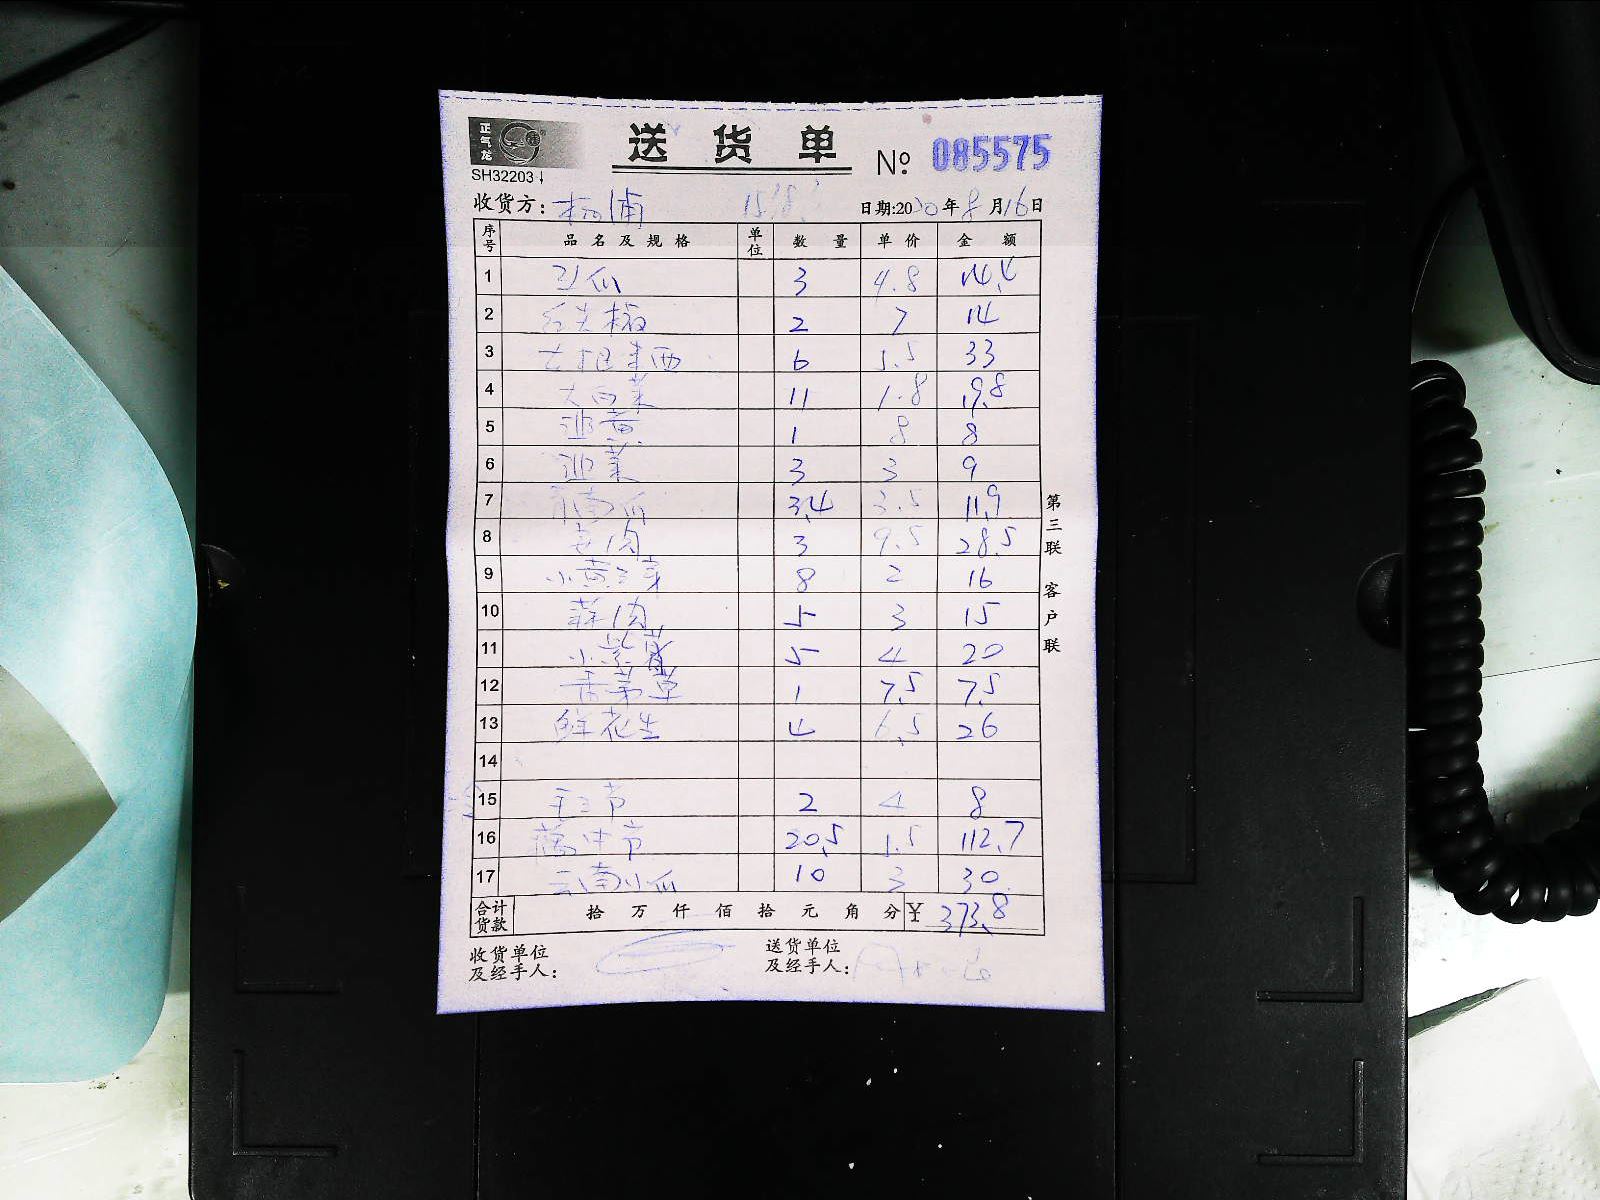 正气龙
送货单
№ 085575
SH32203
收货方: 杨浦
日期:2020年8月16日
序号 品名及规格 单位 数量 单价 金额
1 3 4.8 14.4
2 红尖椒 2 7 14
3 6 5.5 33
4 大白菜 11 1.8 19.8
5 韭黄 1 8 8
6 韭菜 3 3 9
7 南瓜 3.4 3.5 11.9
8 肉 3 9.5 28.5
9 小黄 8 2 16
10 肉 5 3 15
11 小紫薯 5 4 20
12 香茅草 1 7.5 7.5
13 鲜花生 4 6.5 26
14
15 2 4 8
16 20.5 1.5 112.7
17 云南小瓜 10 3 30
合计货款 拾 万 仟 佰 拾 元 角 分 ¥ 373.8
收货单位及经手人:
送货单位及经手人:
第三联 客户联